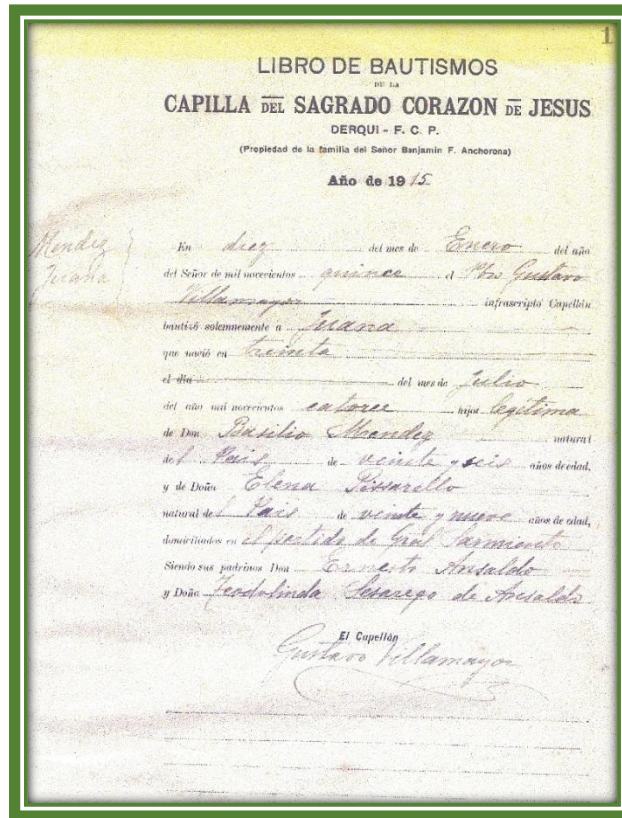 1
LIBRO DE BAUTISMOS
DE LA
CAPILLA DEL SAGRADO CORAZON DE JESUS
DERQUI - F. C. P.
(Propiedad de la familia del Señor Benjamin F. Anchorona)
Año de 1915
Mendez
Juana
En diez del mes de Enero del año
del Señor de mil novecientos quince el Pbro Gustavo
Villamayor infrascripto Capellán
bautizó solemnemente a Juana
que nació en treinta
el dia del mes de Julio
del año mil novecientos catorce hija legítima
de Don Basilio Mendez natural
del Pais de veinte y seis años de edad,
y de Doña Elena Pissarello
natural del Pais de veinte y nueve años de edad,
domiciliados en el partido de Gral Sarmiento
Siendo sus padrinos Don Ernesto Ansaldo
y Doña Teodolinda de Ansaldo
El Capellán
Gustavo Villamayor